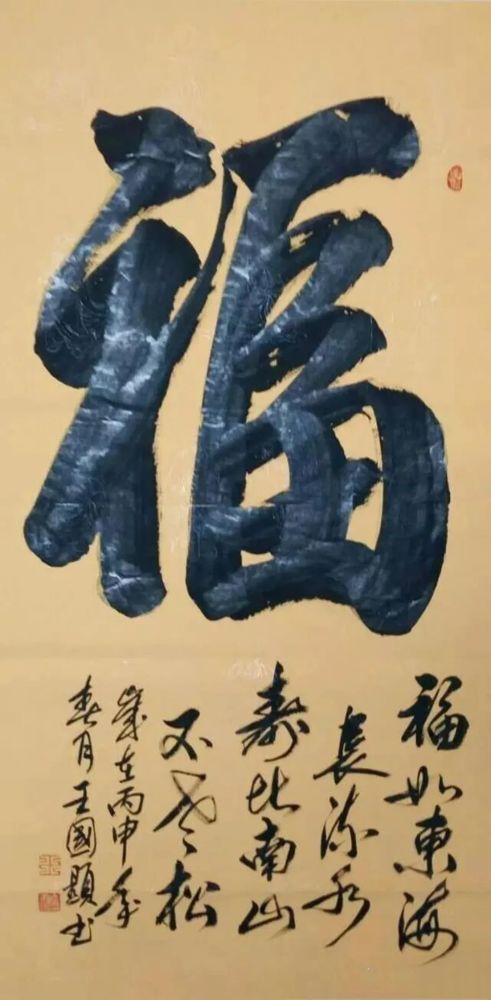 福
福如東海
長流水
壽比南山
不老松
歲在丙申年
春月王國顯書